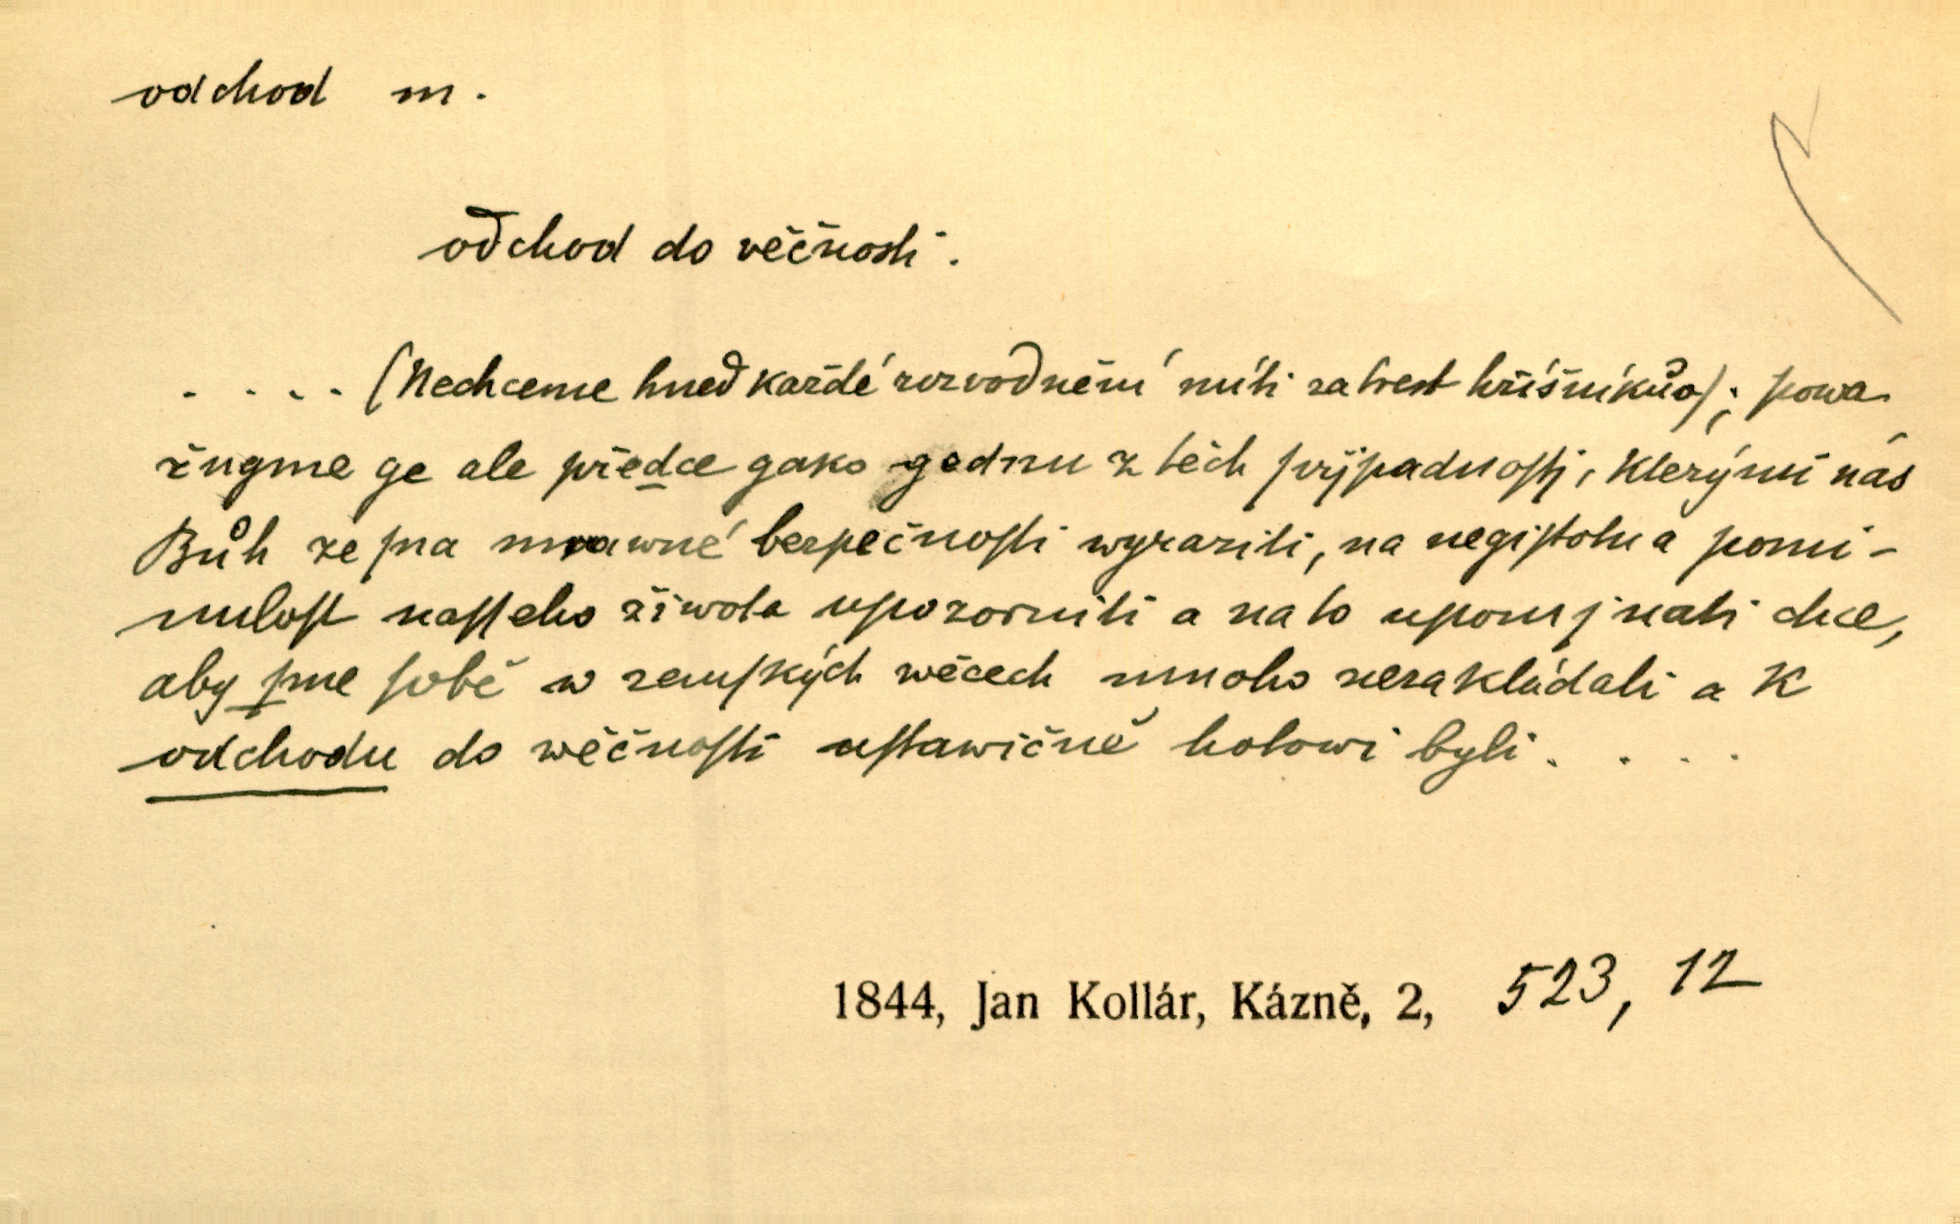 odchod m.
odchod do věčnosti.
. . . . (Nechceme hned každé rozvodnění míti za trest hříšníkův); powa-
žugme ge ale předce gako gednu z těch přjpadnostj, kterými nás
Bůh ze sna mrawné bezpečnosti wyraziti, na negistotu a pomi-
nulost nasseho žiwota upozorniti a na to upomjnati chce,
aby sme sobě w zemských wěcech mnoho nezakládali a k
odchodu do wěčnosti ustawičně hotowi byli. . . .
1844, Jan Kollár, Kázně, 2, 523, 12